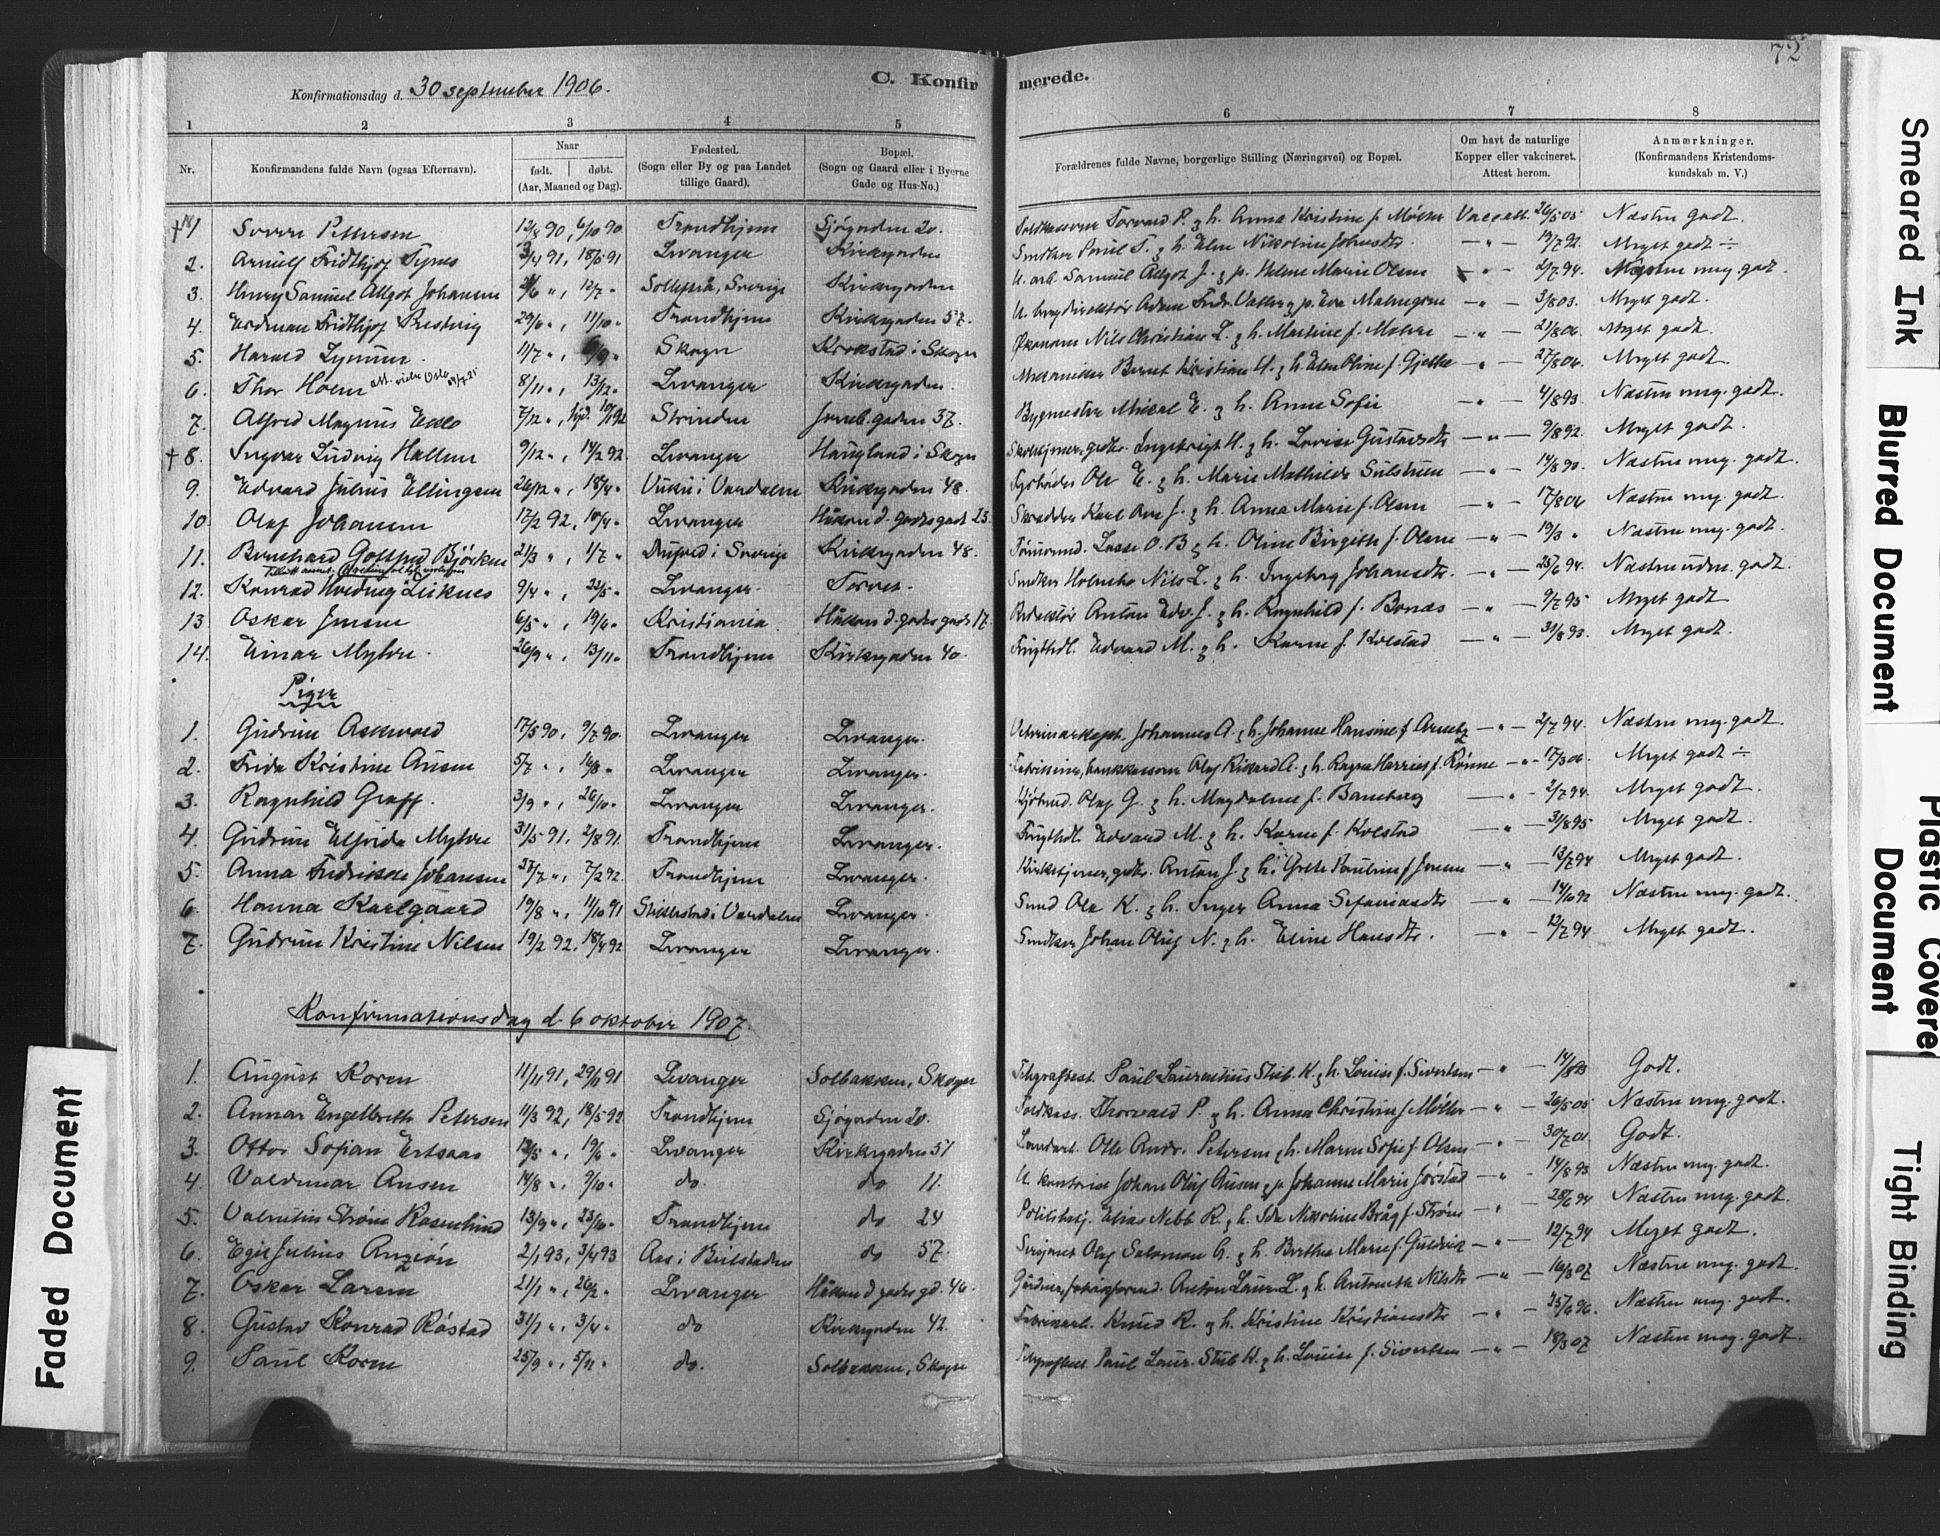 72
C. Konfirmerede.
Konfirmationsdag d. 30 september 1906.
1 2 3 4 5 6 7 8
Nr. Konfirmandens fulde Navn (ogsaa Efternavn). Naar født. døbt. (Aar, Maaned og Dag). Fødested. (Sogn eller By og paa Landet tillige Gaard). Bopæl. (Sogn og Gaard eller i Byerne Gade og Hus-No.) Forældrenes fulde Navne, borgerlige Stilling (Næringsvei) og Bopæl. Om havt de naturlige Kopper eller vakcineret. Attest herom. Anmærkninger. (Konfirmandens Kristendomskundskab m. V.)
1 Petersen 13/8 90, 6/10 90 Trondhjem Sjøgaden 20. Torvald P. & h. Anna Kristine f. Møller Vaccatt. 26/5 05 Næsten godt.
2. Arnulf Fridthjof Tynes 3/4 91, 18/6 91 Levanger Kirkegaden Snedker T. & h. Nikoline Johnsdtr. — " — 19/7 92. Meget godt ÷
3. Henry Samuel Algot Johansen Sverige Kirkegaden U. arb. Samuel Algot J. & p. Helene Marie Olsen — " — 2/7 94. Næsten meg. godt.
4. Fridthjof 29/6 ", 11/10 " Trondhjem Kirkegaden 57. Malmgren — " — 3/8 03. Meget godt.
5. Harald 11/7 ", Skogn Krokstad i Skogn Økonom Nils Christian L. & h. — " — 21/8 06. Meget godt.
6. Thor Holm 8/11 ", 13/12 " Levanger Kirkegaden. Mekaniker Bernt Kristian H. & h. Elen Oline f. Gjelle — " — 27/8 04. Meget godt
7. Alfred Magnus Eklo 7/12 ", Strinden Jernb.gaden 37. Bygmester Mikal E. & h. Anne Sofie — " — 4/8 93 Næsten meg. godt.
† 8. Ingvar Ludvig Hallem 9/12 ", 14/2 92. Levanger Haugland i Skogn Ingebrigt H. & h. Lovise Gustavsdtr — " — 9/8 92. Meget godt.
9. Edvard Julius Ellingsen 26/12 ", 18/4 " Vuku i Værdalen Kirkegaden 48. Ole E. & h. Marie Mathilde — " — 14/8 90. Næsten meg. godt.
10. Olaf Johansen 17/2 92, 10/4 " Levanger Håkon d. godes gade 23. Skrædder Karl J. & h. Anna Marie f. Olsen — " — 17/8 04 Næsten meg. godt.
11. Bernhard Gotfred Björken 21/3 ", 1/7 " i Sverige Kirkegaden 48. Lasse O. B. & h. Oline Birgith f. Olsen — " — 19/3 " Næsten meg. godt.
12. Konrad Hvedning Leiknes 9/4 ", 22/5 " Levanger Torvet. Snedker Nils L. & h. Ingeborg Johansdtr. — " — 25/6 94. Næsten uden. godt.
13 Oskar Jensen 6/5 ", 19/6 " Kristiania Håkon d. godes gade 17. Redaktør Anton Edv. J. & h. Ragnhild f. Bonæs — " — 9/7 95 Meget godt
14. Einar Myhre. 26/9 ", 13/11 " Trondhjem Kirkegaden 40. Edvard M. & h. Karen f. Kolstad — " — 31/8 93. Meget godt.
Piger
1. Gudrun Askevold 17/5 90, 9/7 90. Levanger Levanger. Johannes A. & h. Johanne Hansine f. — " — 2/7 94. Næsten meg. godt.
2. Frida Kristine Ausen 5/7 ", Levanger Levanger. Olaf Rikard A. & h. Ragna f. Rønne — " — 17/3 06. Meget godt ÷
3. Ragnhild Graff. 3/9 ", 26/10 " Levanger Levanger. Olaf G. & h. Magdalene f. — " — 2/7 94. Meget godt.
4. Gudrun Elfrida Myhre 31/5 91, 2/8 91. Trondhjem Levanger. Edvard M. & h. Karen f. Kolstad — " — 31/8 95 Meget godt.
5. Anna Fredrikke Johansen 27/7 ", 7/2 92. Trondhjem Levanger. Anton J. & h. Grete Pauline f. Jensen — " — 13/7 94 Meget godt.
6. Hanna Karlgaard 19/8 ", 11/10 91 Stiklestad i Værdalen Levanger. Smed Ole K. & h. Inger Anna — " — 14/10 92 Næsten meg. godt.
7. Gudrun Kristine Nilsen 19/2 92, 18/4 92 Levanger Levanger. Snedker Johan Oluf N. & h. Eline Hansdtr. — " — 12/7 94 Meget godt.
Konfirmationsdag d. 6 oktober 1907.
1. August Koren 11/11 91, 29/11 91 Levanger Solbakken, Skogn Telegrafbest. Paul Laurentius Stub K. & h. Louise f. Sivertsen — " — 14/8 93 Godt.
2. Annar Engelbreth Petersen 11/3 92, 18/5 92 Trondhjem Sjøgaden 20. Toldkass. Thorvald P. & h. Anna Christine f. Møller — " — 26/5 05 Næsten meg. godt.
3. Ottar Sofian Ertsaas 19/6 " Levanger Kirkegaden 51 Ole Andr. Petersen & h. Maren Sofie f. Olsen — " — 30/7 01. Godt.
4. Valdemar Ausen 14/8 ", 9/10 " do. do 11. Johan Oluf Ausen & p. Johanne Marie Jørstad — " — 14/8 93 Næsten meg. godt.
5. Valentin Strøm Rosenlund 13/9 ", 23/10 " Trondhjem do 24 Elias Nebb R. & h. Ida Nikoline Bråg f. Strøm — " — 28/6 94 Næsten meg. godt.
6. Egil Julius 2/1 93, 3/4 93 i Beitstaden do 57. Olaf Salomon & h. Berthe Marie f. — " — 12/7 94 Meget godt.
7. Oskar Larsen 21/1 ", 26/2 " Levanger Håkon d. godes gd. 46. Anton Laur. L. & h. Antonette Nilsdtr — " — 16/3 07 Næsten meg. godt.
8. Gustav Konrad Røstad 31/1 ", 3/4 " do Kirkegaden 42. Knud R. & h. Kristine Kristiansdtr — " — 25/6 96. Næsten meg. godt.
9. Paul Koren 25/9 ", 5/11 " do. Solbakken, Skogn Telegrafbest. Paul Laur. Stub K. & h. Louise f. Sivertsen — " — 18/3 07 Næsten meg. godt.
Faded Document
Smeared Ink
Blurred Document
Plastic Covered Document
Tight Binding